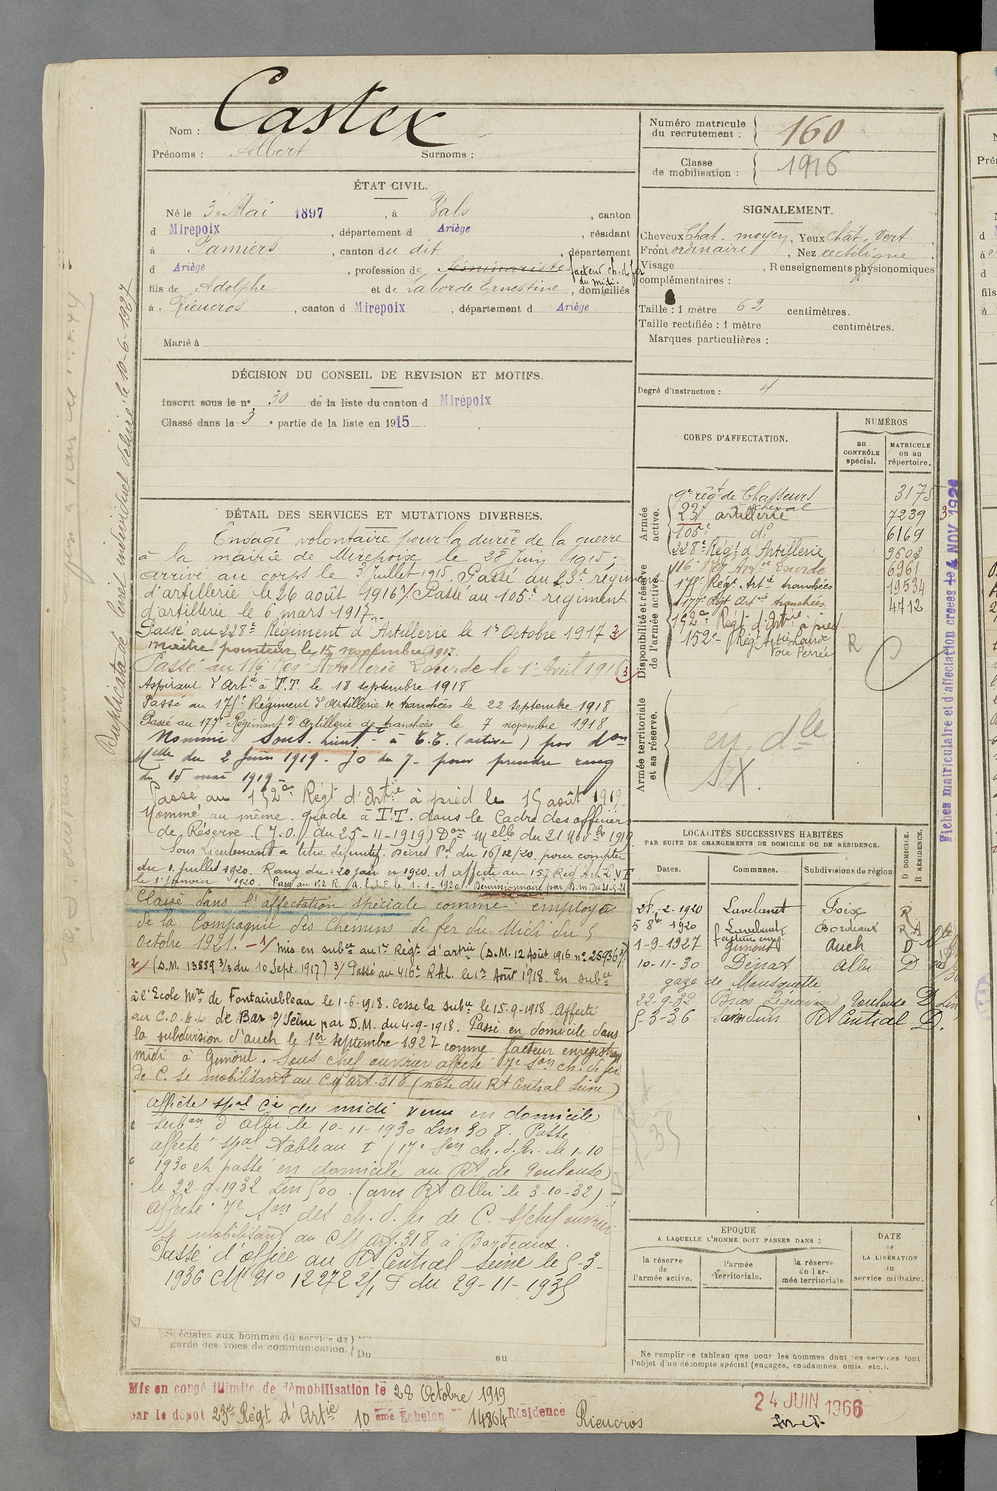 Nom : Castex
Prénoms : Albert Surnoms :
Numéro matricule du recrutement : 160
Classe de mobilisation : 1916
ÉTAT CIVIL.
Né le 3 Mai 1897, à Vals, canton
d Mirepoix, département d Ariège, résidant
à Pamiers, canton du dit, département
d Ariège, profession de Séminariste facteur ch. d. fer du midi
fils de Adolphe et de Laborde Ernestine, domiciliés
à Rieucros, canton d Mirepoix, département d Ariège
Marié à
SIGNALEMENT.
Cheveux Chat. moyen, Yeux Chat. vert
Front ordinaire, Nez rectiligne
Visage , Renseignements physionomiques
complémentaires :
Taille : 1 mètre 62 centimètres.
Taille rectifiée : 1 mètre centimètres.
Marques particulières :
Degré d'instruction : 4
DÉCISION DU CONSEIL DE REVISION ET MOTIFS.
Inscrit sous le n° 30 de la liste du canton d Mirepoix
Classé dans la 3 e partie de la liste en 1915
DÉTAIL DES SERVICES ET MUTATIONS DIVERSES.
Engagé volontaire pour la durée de la guerre
à la mairie de Mirepoix le 28 Juin 1915;
arrivé au corps le 3 Juillet 1915. Passé au 23e régiment
d'artillerie le 26 août 1916 Passé au 105e régiment
d'artillerie le 6 mars 1917
Passé au 228e Régiment d'Artillerie le 1er Octobre 1917
maître pointeur le 15 novembre 1917.
Passé au 116e Rég Artillerie Lourde le 1er Avril 1918
Aspirant d'Artie à T.T. le 18 septembre 1918
Passé au 175e Régiment d'Artillerie de tranchées le 22 septembre 1918
Passé au 177e Régiment d'Artillerie de tranchées le 7 novembre 1918
Nommé Sous-lieut. à T.T. (active) par don
Melle du 2 Juin 1919 - JO du 7 - pour prendre rang
du 15 mai 1919
Passé au 152e Régt d'Artie à pied le 15 août 1919
Nommé au même grade à T.T. dans le Cadre des officiers
de Réserve (J.O. du 25-11-1919) Don Melle du 21 Novbre 1919
Sous Lieutenant à titre définitif. Décret Pel du 16/12/20. pour compter
du 1 Juillet 1920. Rang du 20 juin en 1920. Affecté au 157 Rég Art.
le 1 janvier 1920. Démissionnaire par D.m. du
Classé dans l'affectation spéciale comme employé
de la Compagnie des Chemins de fer du Midi du 5
Octobre 1921. - 1/ mis en subce au 1er Régt d'artrie (D.M. 12 Août 1916 n° 25936 3/)
2/ (D.M. 13859 3/3 du 10 Sept. 1917) 3/ Passé au 416e R.A.L. le 1er Août 1918. En subce
à l'Ecole Mre de Fontainebleau le 1-6-1918. Cesse la subce le 15-9-1918. Affecté
au C.O. A.L. de Bar s/Seine par D.M. du 4-9-1918. Passé en domicile dans
la subdivision d'Auch le 1er septembre 1927 comme facteur enregistrant
midi à Gimont. Sous chef ouvrier affecté 7e Son ch. de fer
de C. se mobilisant au CM art. 318 (note du Rt Central Seine)
affecté spal Cie du midi venu en domicile
subon d'Albi le 10-11-1930 Lm 308. Passé
affecté spal Tableau I (17e Son ch. d. f. le 1.10
1930 et passé en domicile au Rt de Toulouse
le 22-9-1932 Lm 500. (avis Rt Albi le 3-10-32)
affecté 7e Son des ch. d. fer de C. S/chef ouvrier
se mobilisant au CM art. 318 à Bordeaux.
Passé d'office au Rt Central Seine le 5-3-
1936 CM n° 12272 2/1 du 29-11-1935
Spéciales aux hommes du service de garde des voies de communication.
Du au
Duplicata de livret individuel délivré le 10-6-1927
CORPS D'AFFECTATION.
NUMÉROS
au CONTRÔLE spécial.
MATRICULE ou au répertoire.
Armée active.
9e régt de Chasseurs à cheval 3175
23e artillerie 7239
105e do 6169
228e Régt d'Artillerie 9602
116e Rég Artie Lourde 6961
175e Régt Artie tranchées 19534
177e Rgt Artie tranchées 4712
Disponibilité et réserve de l'armée active.
152e Régt d'Artie à pied
Voie Ferrée
R
Armée territoriale et sa réserve.
Fiches matriculaire et d'affectation créées le 4 NOV 192
LOCALITÉS SUCCESSIVES HABITÉES
PAR SUITE DE CHANGEMENTS DE DOMICILE OU DE RÉSIDENCE.
Dates. Communes. Subdivisions de région D DOMICILE. R RÉSIDENCE.
28-2-1920 Lavelanet Foix R
5 8bre 1920 Lavelanet Bordeaux
1-9-1927 Gimont Auch D
10-11-30 Dénat Albi D
gare de Mousquette
22-9-32 Toulouse D
5-3-36 Rt Central D.
EPOQUE
A LAQUELLE L'HOMME DOIT PASSER DANS :
la réserve de l'armée active.
l'armée territoriale.
la réserve de l'armée territoriale
DATE de LA LIBÉRATION du service militaire.
Ne remplir ce tableau que pour les hommes dont les services font
l'objet d'un décompte spécial (engagés, condamnés, omis, etc.).
Mis en congé illimité de démobilisation le 28 Octobre 1919
par le dépôt 23e Régt d'Artie 10 eme Echelon 14864 Résidence Rieucros
24 JUIN 1966